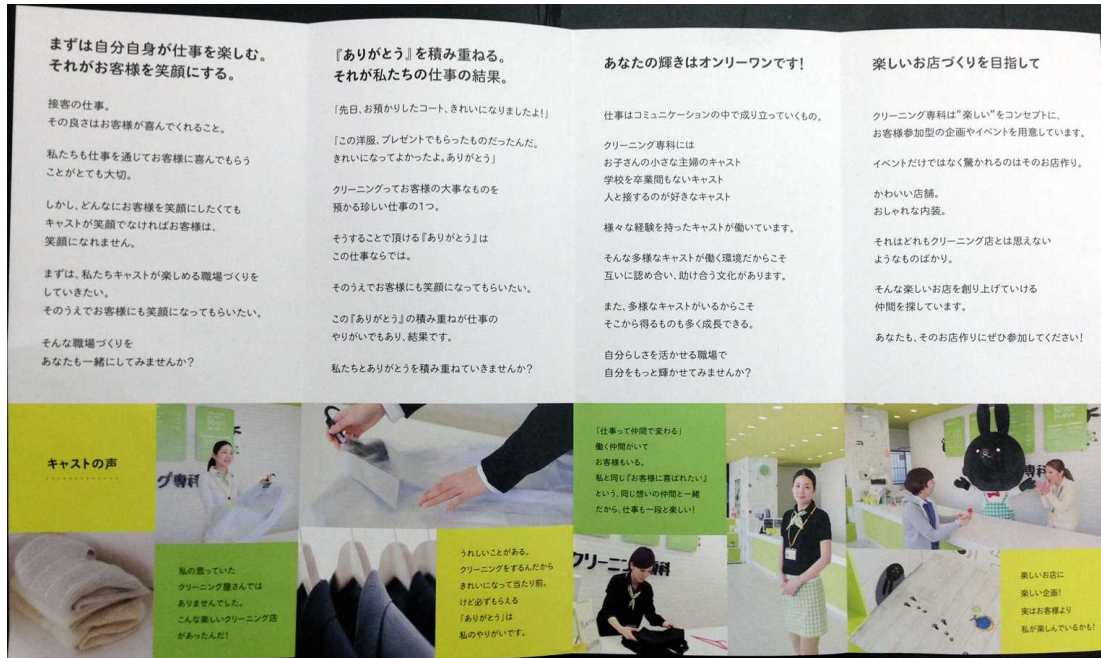 まずは自分自身が仕事を楽しむ。
それがお客様を笑顔にする。
接客の仕事。
その良さはお客様が喜んでくれること。
私たちも仕事を通じてお客様に喜んでもらう
ことがとても大切。
しかし、どんなにお客様を笑顔にしたくても
キャストが笑顔でなければお客様は、
笑顔になれません。
まずは、私たちキャストが楽しめる職場づくりを
していきたい。
そのうえでお客様にも笑顔になってもらいたい。
そんな職場づくりを
あなたも一緒にしてみませんか？
『ありがとう』を積み重ねる。
それが私たちの仕事の結果。
「先日、お預かりしたコート、きれいになりましたよ！」
「この洋服、プレゼントでもらったものだったんだ。
きれいになってよかったよ。ありがとう」
クリーニングってお客様の大事なものを
預かる珍しい仕事の1つ。
そうすることで頂ける『ありがとう』は
この仕事ならでは。
そのうえでお客様にも笑顔になってもらいたい。
この『ありがとう』の積み重ねが仕事の
やりがいでもあり、結果です。
私たちとありがとうを積み重ねていきませんか？
あなたの輝きはオンリーワンです！
仕事はコミュニケーションの中で成り立っていくもの。
クリーニング専科には
お子さんの小さな主婦のキャスト
学校を卒業間もないキャスト
人と接するのが好きなキャスト
様々な経験を持ったキャストが働いています。
そんな多様なキャストが働く環境だからこそ
互いに認め合い、助け合う文化があります。
また、多様なキャストがいるからこそ
そこから得るものも多く成長できる。
自分らしさを活かせる職場で
自分をもっと輝かせてみませんか？
楽しいお店づくりを目指して
クリーニング専科は“楽しい”をコンセプトに、
お客様参加型の企画やイベントを用意しています。
イベントだけではなく驚かれるのはそのお店作り。
かわいい店舗。
おしゃれな内装。
それはどれもクリーニング店とは思えない
ようなものばかり。
そんな楽しいお店を創り上げていける
仲間を探しています。
あなたも、そのお店作りにぜひ参加してください！
キャストの声
グ専科
私の思っていた
クリーニング屋さんでは
ありませんでした。
こんな楽しいクリーニング店
があったんだ！
うれしいことがある。
クリーニングをするんだから
きれいになって当たり前。
けど必ずもらえる
「ありがとう」は
私のやりがいです。
「仕事って仲間で変わる」
働く仲間がいて
お客様もいる。
私と同じ『お客様に喜ばれたい』
という、同じ想いの仲間と一緒
だから、仕事も一段と楽しい！
クリーニ
科
楽しいお店に
楽しい企画！
実はお客様より
私が楽しんでいるかも！